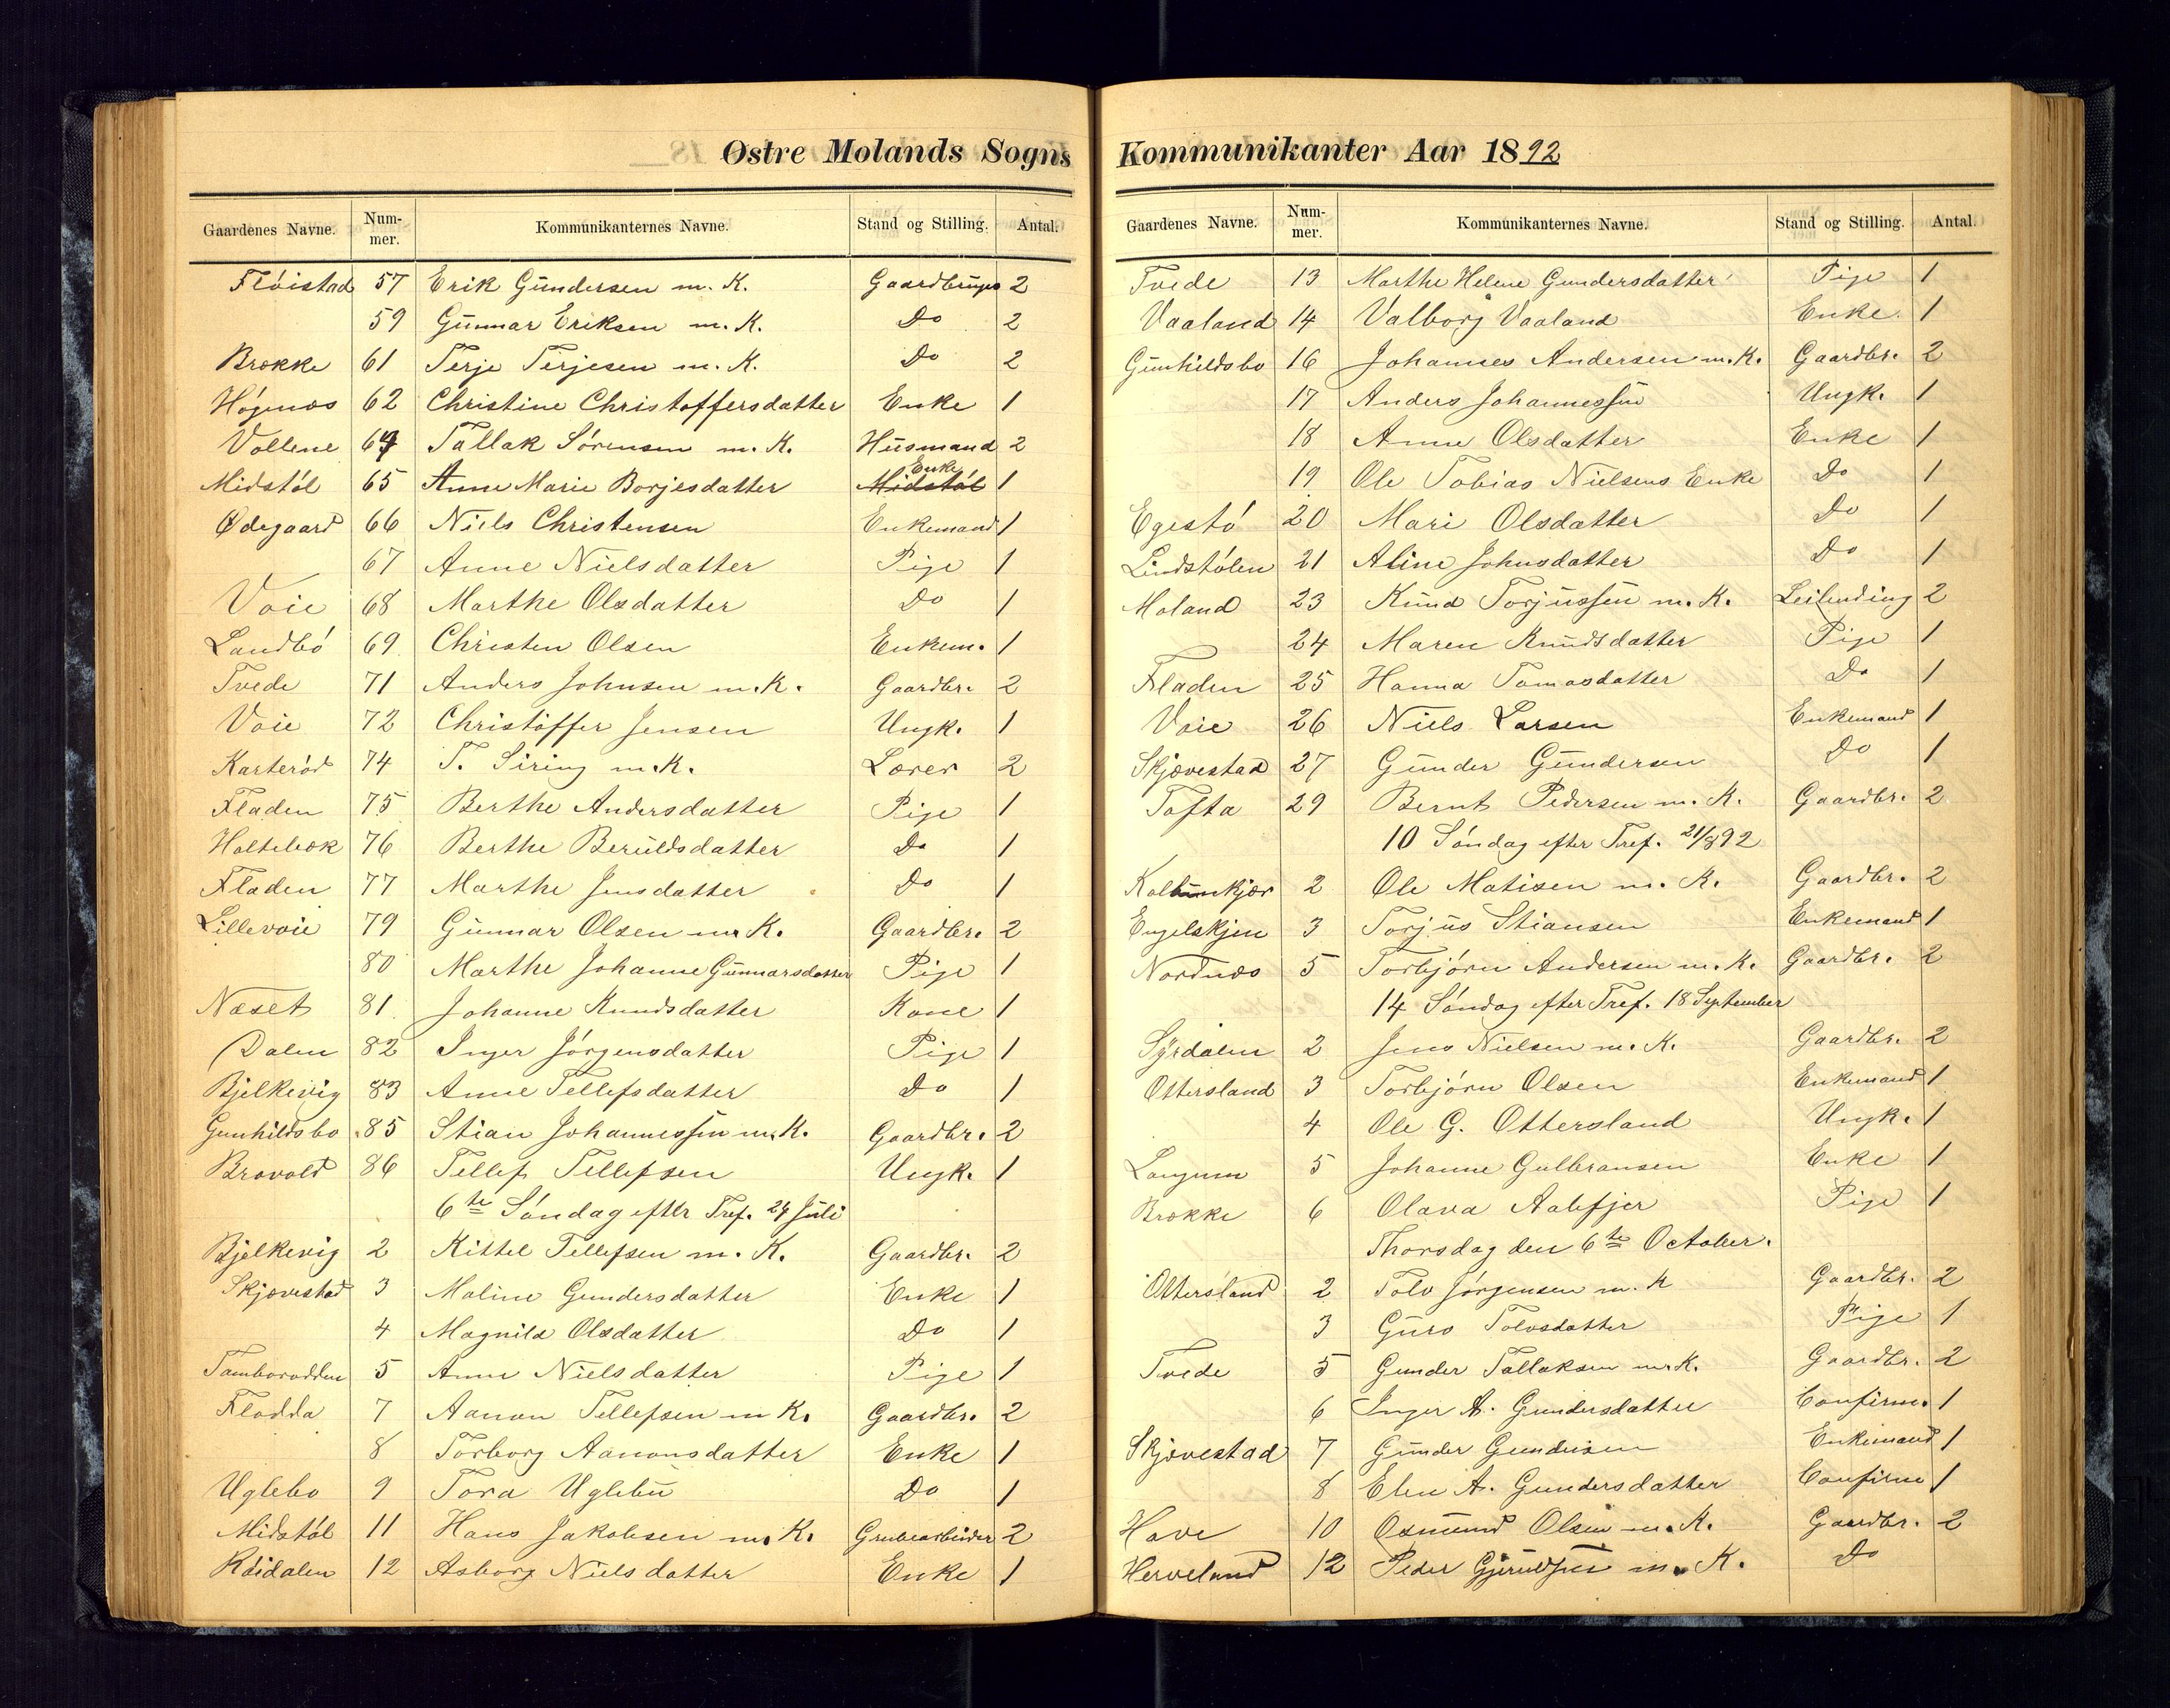 Østre Molands Sogns
Gaardenes Navne. Num-mer. Kommunikanternes Navne. Stand og Stilling. Antal.
Flöistad 57 Erik Gundersen m. K. Gaardbruger 2
59 Gunnar Eriksen m. K. Do 2
Brække 61 Terje Terjesen m. K. Do 2
Högnæs 62 Christine Christoffersdatter Enke 1
Vollene 64 Tallak Sörensen m. K. Husmand 2
Midstöl 65 Anne Marie Borjesdatter Midstöl Enke 1
Ødegaard 66 Niels Christensen Enkemand 1
67 Anne Nielsdatter Pige 1
Voie 68 Marthe Olsdatter Do 1
Landbö 69 Christen Olsen Enkem. 1
Tvede 71 Anders Johnsen m. K. Gaardbr. 2
Voie 72 Christoffer Jensen Ungk. 1
Karteröd 74 T. Siring m. K. Lærer 2
Fladen 75 Berthe Andersdatter Pige 1
Holtebæk 76 Berthe Beruldsdatter Do 1
Fladen 77 Marthe Jensdatter Do 1
Lillevoie 79 Gunnar Olsen m. K. Gaardbr. 2
80 Marthe Johanne Gunnarsdatter Pige 1
Næset 81 Johanne Knudsdatter Kone 1
Dalen 82 Inger Jörgensdatter Pige 1
Bjelkevig 83 Anne Tellefsdatter Do 1
Gunhildsbo 85 Stian Johannessen m. K. Gaardbr. 2
Bråvold 86 Tellef Tellefsen Ungk. 1
6te Söndag efter Tref. 24 Juli
Bjelkevig 2 Kittel Tellefsen m. K. Gaardbr. 2
Skjævestad 3 Maline Gundersdatter Enke 1
4 Magnild Olsdatter Do 1
5 Anne Nielsdatter Pige 1
Flødda 7 Aanon Tellefsen m K. Gaardbr. 2
8 Torborg Aanonsdatter Enke 1
Uglebo 9 Tora Uglebu Do 1
Midstöl 11 Hans Jakobsen m. K. Grubearbeider 2
Röidalen 12 Asborg Nielsdatter Enke 1
Kommunikanter Aar 1892
Gaardenes Navne. Num-mer. Kommunikanternes Navne. Stand og Stilling. Antal.
Tvede 13 Marthe Helene Gundersdatter Pige 1
Vaaland 14 Valborg Vaaland Enke 1
Gunhildsbo 16 Johannes Andersen m. K. Gaardbr. 2
17 Anders Johannessen Ungk. 1
18 Anne Olsdatter Enke 1
19 Ole Tobias Nielsens Enke Do 1
Egestö 20 Mari Olsdatter Do 1
Lindstölen 21 Aline Johnsdatter Do 1
Moland 23 Knud Torjussen m. K. Leilending 2
24 Maren Knudsdatter Pige 1
Fladen 25 Hanna Tomasdatter Do 1
Voie 26 Niels Larsen Enkemand 1
Skjævestad 27 Gunder Gundersen Do 1
Tofta 29 Bernt Pedersen m. K. Gaardbr. 2
10 Söndag efter Tref. 21/8 92
Kolbunkjær 2 Ole Matisen m. K. Gaardbr. 2
Engelskjen 3 Torjus Stiansen Enkemand 1
Nordnæs 5 Torbjörn Andersen m. K. Gaardbr. 2
14 Söndag efter Tref. 18 September
Syrdalen 2 Jens Nielsen m. K. Gaardbr. 2
Ottersland 3 Torbjörn Olsen Enkemand 1
4 Ole G. Ottersland Ungk. 1
Langum 5 Johanne Gulbransen Enke 1
Brække 6 Olava Aalefjer Pige 1
Thorsdag den 6te October.
Ottersland 2 Tolv Jörgensen m. K Gaardbr. 2
3 Guro Tolvsdatter Pige 1
Tvede 5 Gunder Tallaksen m. K. Gaardbr. 2
6 Inger A. Gundersdatter Confirm. 1
Skjævestad 7 Gunder Gundersen Enkemand 1
8 Elen A. Gundersdatter Confirm 1
Have 10 Osmund Olsen m. K. Gaardbr. 2
Herveland 12 Peder Gjeruldsen m. K. Do